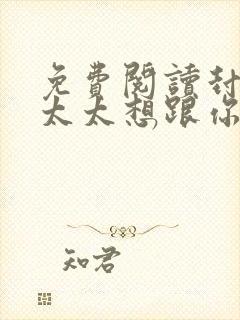 免費閱讀封
太太想跟你
知君